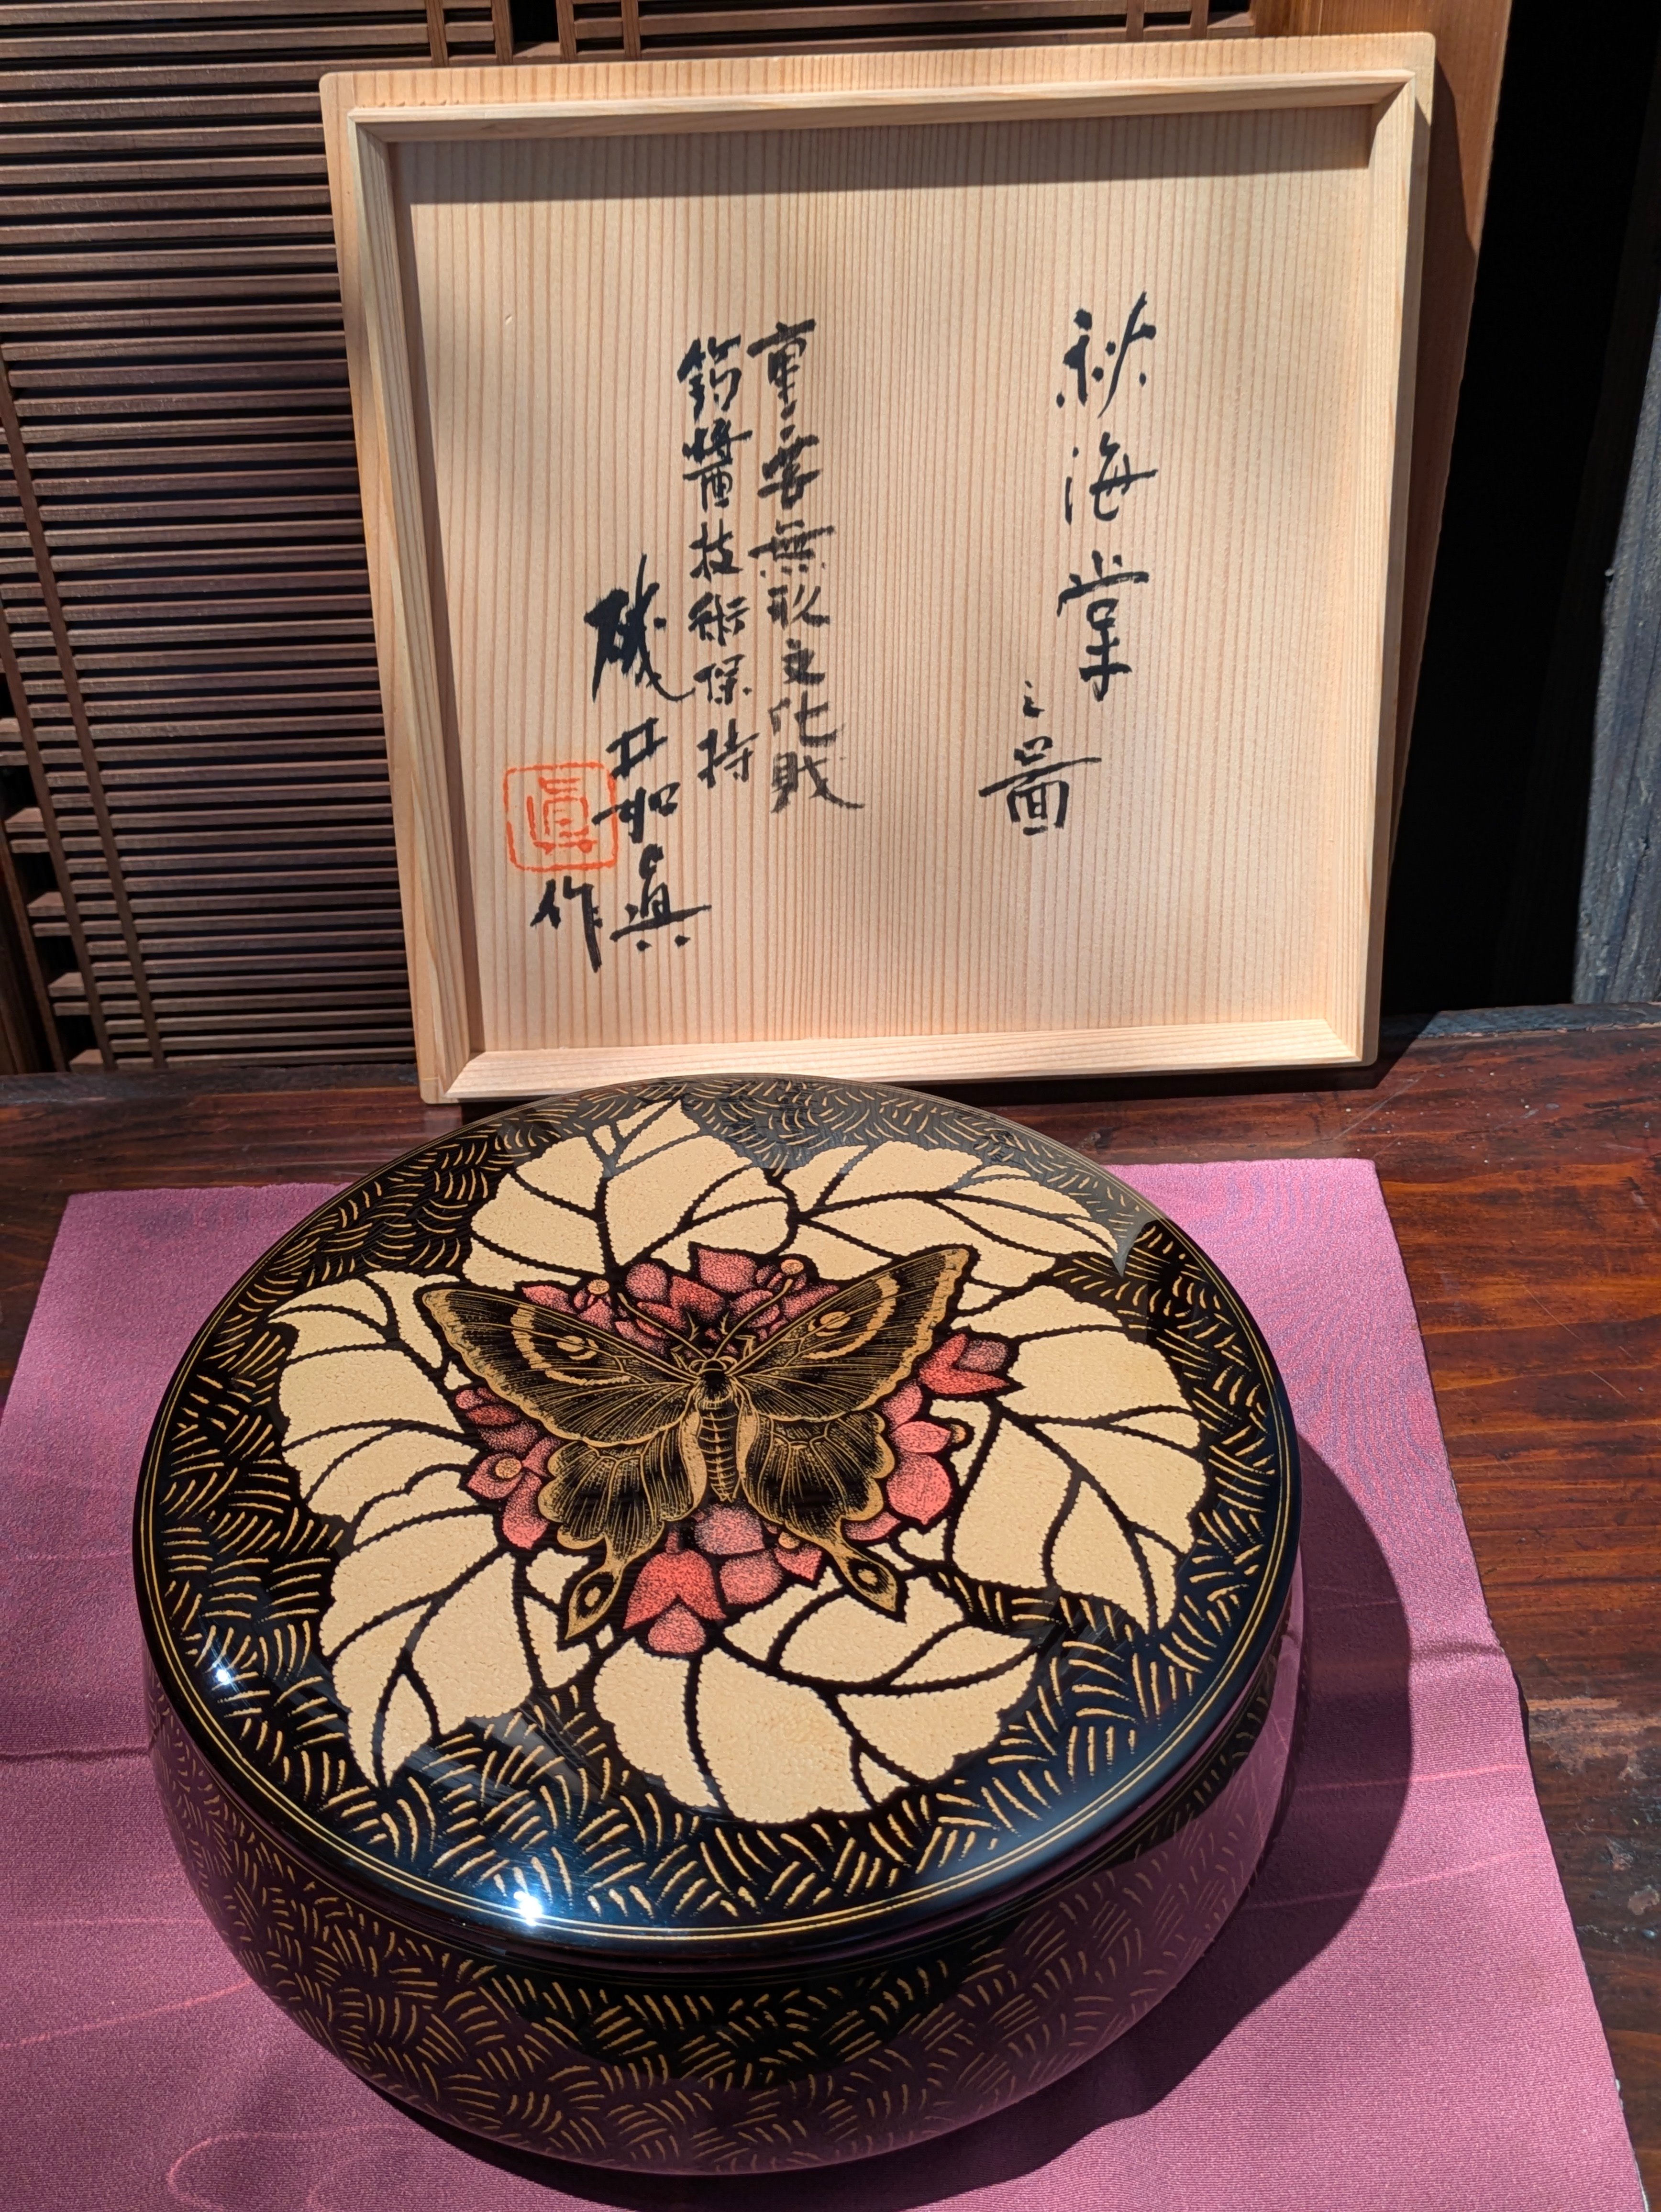 秋海棠之圖
重要無形文化財
蒟醬技術保持
磯井如眞
作
眞